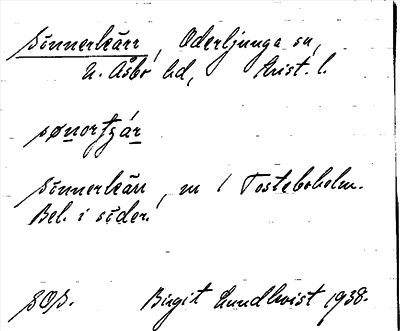 Sönnerkärr, Oderljunga sn,
N. Åsbo hd, Krist. l.
sønortjár
Sönnerkärr, m / Tosteboholm.
Bel. i söder.
SOS. Birgit Lundkvist 1938.